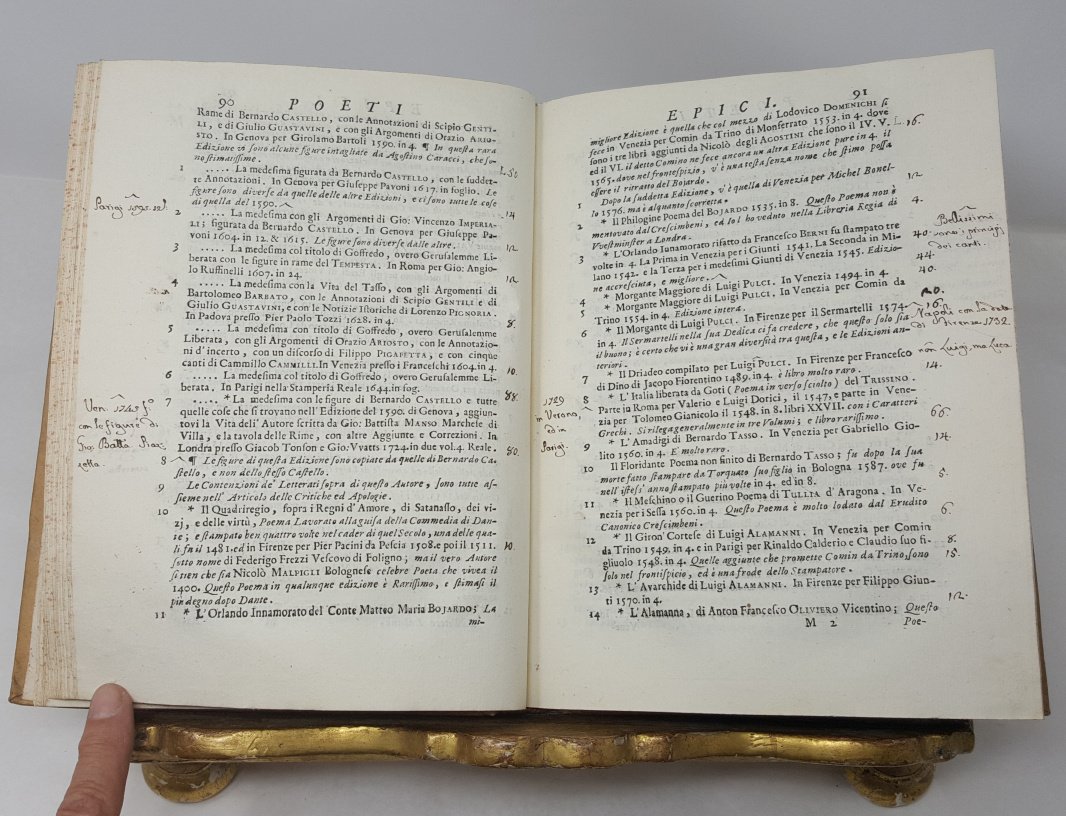 90 POETI
Rame di Bernardo CASTELLO, con le Annotazioni di Scipio GENTI-
LI, e di Giulio GUASTAVINI, e con gli Argomenti di Orazio ARIO-
STO. In Genova per Girolamo Bartoli 1590. in 4. ¶ In questa rara
Edizione vi sono alcune figure intagliate da Agostino Caracci, che so-
no stimatissime. L. 50
1 ..... La medesima figurata da Bernardo CASTELLO, con le suddet-
te Annotazioni. In Genova per Giuseppe Pavoni 1617. in foglio. Le
figure sono diverse da quelle delle altre Edizioni, e ci sono tutte le cose
di quella del 1590. 14
Parigi 1595. 12.
2 ..... La medesima con gli Argomenti di Gio: Vincenzo IMPERIA-
LI; figurata da Bernardo CASTELLO. In Genova per Giuseppe Pa-
voni 1604. in 12. & 1615. Le figure sono diverse dalle altre. 12
3 ..... La medesima col titolo di Goffredo, overo Gerusalemme Li-
berata con le figure in rame del TEMPESTA. In Roma per Gio: Angio-
lo Ruffinelli 1607. in 24. 12
4 ..... La medesima con la Vita del Tasso, con gli Argomenti di
Bartolomeo BARBATO, con le Annotazioni di Scipio GENTILI e di
Giulio GUASTAVINI, e con le Notizie Istoriche di Lorenzo PIGNORIA.
In Padova presso Pier Paolo Tozzi 1628. in 4. 8.
5 ..... La medesima con titolo di Goffredo, overo Gerusalemme
Liberata, con gli Argomenti di Orazio ARIOSTO, con le Annotazio-
ni d'incerto, con un discorso di Filippo PIGAFETTA, e con cinque
canti di Cammillo CAMMILLI. In Venezia presso i Franceschi 1604. in 4. 10.
6 ..... La medesima col titolo di Goffredo, overo Gerusalemme Li-
berata. In Parigi nella Stamperia Reale 1644. in fog. 88.
7 ..... * La medesima con le figure di Bernardo CASTELLO e tutte
quelle cose che si trovano nell'Edizione del 1590. di Genova, aggiun-
tovi la Vita dell'Autore scritta da Gio: Battista MANSO Marchese di
Villa, e la tavola delle Rime, con altre Aggiunte e Correzioni. In
Londra presso Giacob Tonson e Gio: Vvatts 1724. in due vol. 4. Reale. 80.
Ven. 1745 fo
con le figure di
Gio: Batta Piaz
zetta.
8 ¶ Le figure di questa Edizione sono copiate da quelle di Bernardo Ca-
stello, e non dello stesso Castello.
9 Le Contenzioni de' Letterati sopra di questo Autore, sono tutte as-
sieme nell'Articolo delle Critiche ed Apologie.
10 * Il Quadriregio, sopra i Regni d'Amore, di Satanasso, dei vi-
zj, e delle virtù, Poema Lavorato alla guisa della Commedia di Dan-
te; e stampato ben quattro volte nel cader di quel Secolo, una delle qua-
li fu il 1481. ed in Firenze per Pier Pacini da Pescia 1508. e poi il 1511. 10.
sotto nome di Federigo Frezzi Vescovo di Foligno; ma il vero Autore
si tien che sia Nicolò MALPIGLI Bolognese celebre Poeta che vivea il
1400. Questo Poema in qualunque edizione è Rarissimo, e stimasi il
più degno dopo Dante.
11 * L'Orlando Innamorato del Conte Matteo Maria BOJARDO; La
mi-
EPICI. 91
migliore Edizione è quella che col mezzo di Lodovico DOMENICHI si
fece in Venezia per Comin da Trino di Monferrato 1553. in 4. dove
sono i tre libri aggiunti da Nicolò degli AGOSTINI che sono il IV. V. L. 16.
ed il VI. il detto Comino ne fece ancora un altra Edizione pure in 4. il
1565. dove nel frontespizio, v'è una testa senza nome che stimo possa
essere il ritratto del Bojardo.
1 Dopo la suddetta Edizione, v'è quella di Venezia per Michel Bonel-
lo 1576. ma è alquanto scorretta. 12
2 * Il Philogine Poema del BOJARDO 1535. in 8. Questo Poema non è
mentovato dal Crescimbeni, ed io l'ho veduto nella Libreria Regia di
Vvestminster a Londra. 4.
3 * L'Orlando Innamorato rifatto da Francesco BERNI fu stampato tre
volte in 4. La Prima in Venezia per i Giunti 1541. La Seconda in Mi-
lano 1542. e la Terza per i medesimi Giunti di Venezia 1545. Edizio-
ne accresciuta, e migliore. 40 44.
Bellissimi
sono i principj
dei canti.
4 * Morgante Maggiore di Luigi PULCI. In Venezia 1494. in 4. 40.
5 * Morgante Maggiore di Luigi PULCI. In Venezia per Comin da
Trino 1554. in 4. Edizione intera. 20.
6 * Il Morgante di Luigi PULCI. In Firenze per il Sermartelli 1574. 16.
in 4. Il Sermartelli nella sua Dedica ci fa credere, che questo solo sia
il buono; è certo che vi è una gran diversità tra questa, e le Edizioni an-
teriori.
Napoli con la data
di Firenze 1732.
7 * Il Driadeo compilato per Luigi PULCI. In Firenze per Francesco
di Dino di Jacopo Fiorentino 1489. in 4. è libro molto raro. 14.
non Luigi, ma Luca
8 * L'Italia liberata da Goti (Poema in verso sciolto) del TRISSINO.
Parte in Roma per Valerio e Luigi Dorici, il 1547, e parte in Vene-
zia per Tolomeo Gianicolo il 1548. in 8. libri XXVII. con i Caratteri
Grechi. Si rilega generalmente in tre Volumi; e libro rarissimo. 66.
1729
in Verona,
ed in
Parigi.
9 * L'Amadigi di Bernardo TASSO. In Venezia per Gabriello Gio-
lito 1560. in 4. E molto raro. 14.
10 Il Floridante Poema non finito di Bernardo TASSO; fu dopo la sua
morte fatto stampare da Torquato suo figlio in Bologna 1587. ove fu
nell'istess'anno stampato più volte in 4. ed in 8. 5.
11 * Il Meschino o il Guerino Poema di TULLIA d'Aragona. In Ve-
nezia per i Sessa 1560. in 4. Questo Poema è molto lodato dal Erudito
Canonico Crescimbeni. 6.
12 * Il Giron' Cortese di Luigi ALAMANNI. In Venezia per Comin
da Trino 1549. in 4. e in Parigi per Rinaldo Calderio e Claudio suo fi- 8.
gliuolo 1548. in 4. Quelle aggiunte che promette Comin da Trino, sono 15.
solo nel frontispicio, ed è una frode dello Stampatore.
13 * L'Avarchide di Luigi ALAMANNI. In Firenze per Filippo Giun-
ti 1570. in 4. 12.
14 * L'Alamanna, di Anton Francesco OLIVIERO Vicentino; Questo
M 2 Poe-